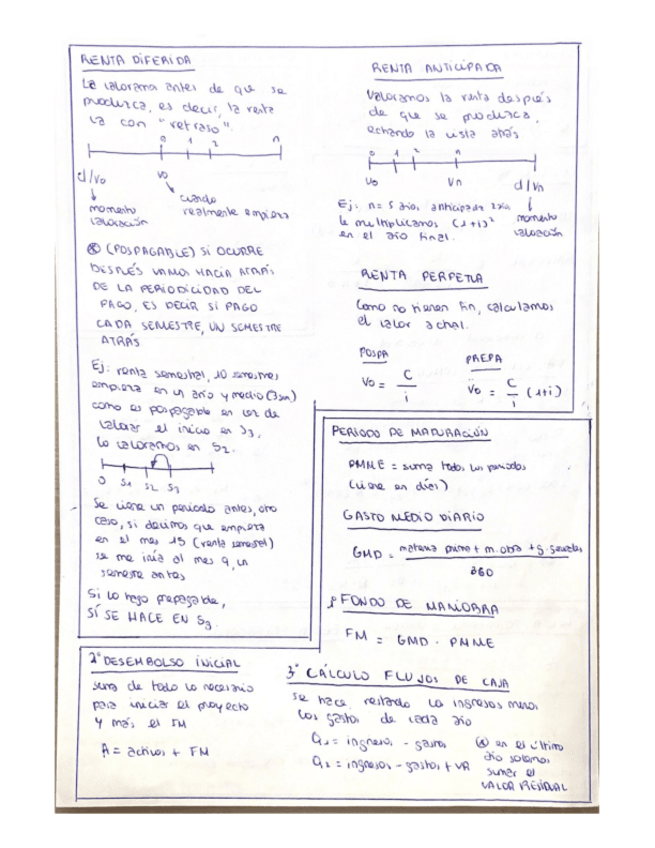 RENTA DIFERIDA
La valoramos antes de que se
produzca, es decir, la renta
va con "retraso".
0 1 2 n
d/Vo Vo
momento valoración
cuando realmente empieza
(POSPAGABLE) SI OCURRE
DESPUÉS VAMOS HACIA ATRÁS
DE LA PERIODICIDAD DEL
PAGO, ES DECIR SI PAGO
CADA SEMESTRE, UN SEMESTRE
ATRÁS
Ej: renta semestral, 10 semestres
empieza en un año y medio (3sem)
como es pospagable en vez de
valorar el inicio en S3,
lo valoramos en S2.
0 S1 S2 S3
Se viene un periodo antes, otro
caso, si decimos que empieza
en el mes 15 (renta semestral)
se me iría al mes 9, un
semestre antes
Si lo hago prepagable,
SÍ SE HACE EN S3.
RENTA ANTICIPADA
Valoramos la renta después
de que se produzca,
echando la vista atrás
0 1 2 n
Vo Vn d/Vn
momento valoración
Ej: n= 5 años, anticipada 2 años
le multiplicamos (1+i)²
en el año final.
RENTA PERPETUA
Como no tienen fin, calculamos
el valor actual.
POSPA
Vo = C / i
PREPA
Vo = C / i (1+i)
PERIODO DE MADURACIÓN
PMME = suma todos los periodos
(viene en días)
GASTO MEDIO DIARIO
GMD = materia prima + m. obra + g. generales
360
1º FONDO DE MANIOBRA
FM = GMD · PMME
2º DESEMBOLSO INICIAL
suma de todo lo necesario
para iniciar el proyecto
y más el FM
A = activos + FM
3º CÁLCULO FLUJOS DE CAJA
se hace restando los ingresos menos
los gastos de cada año
Q1 = ingresos - gastos
Q2 = ingresos - gastos + VR
en el último
año solemos
sumar el
VALOR RESIDUAL